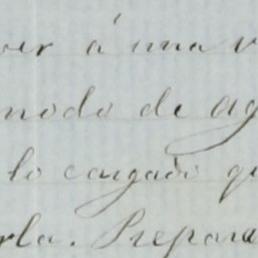 ver á una v
modo de ag
lo cargado q
rla. Prepara